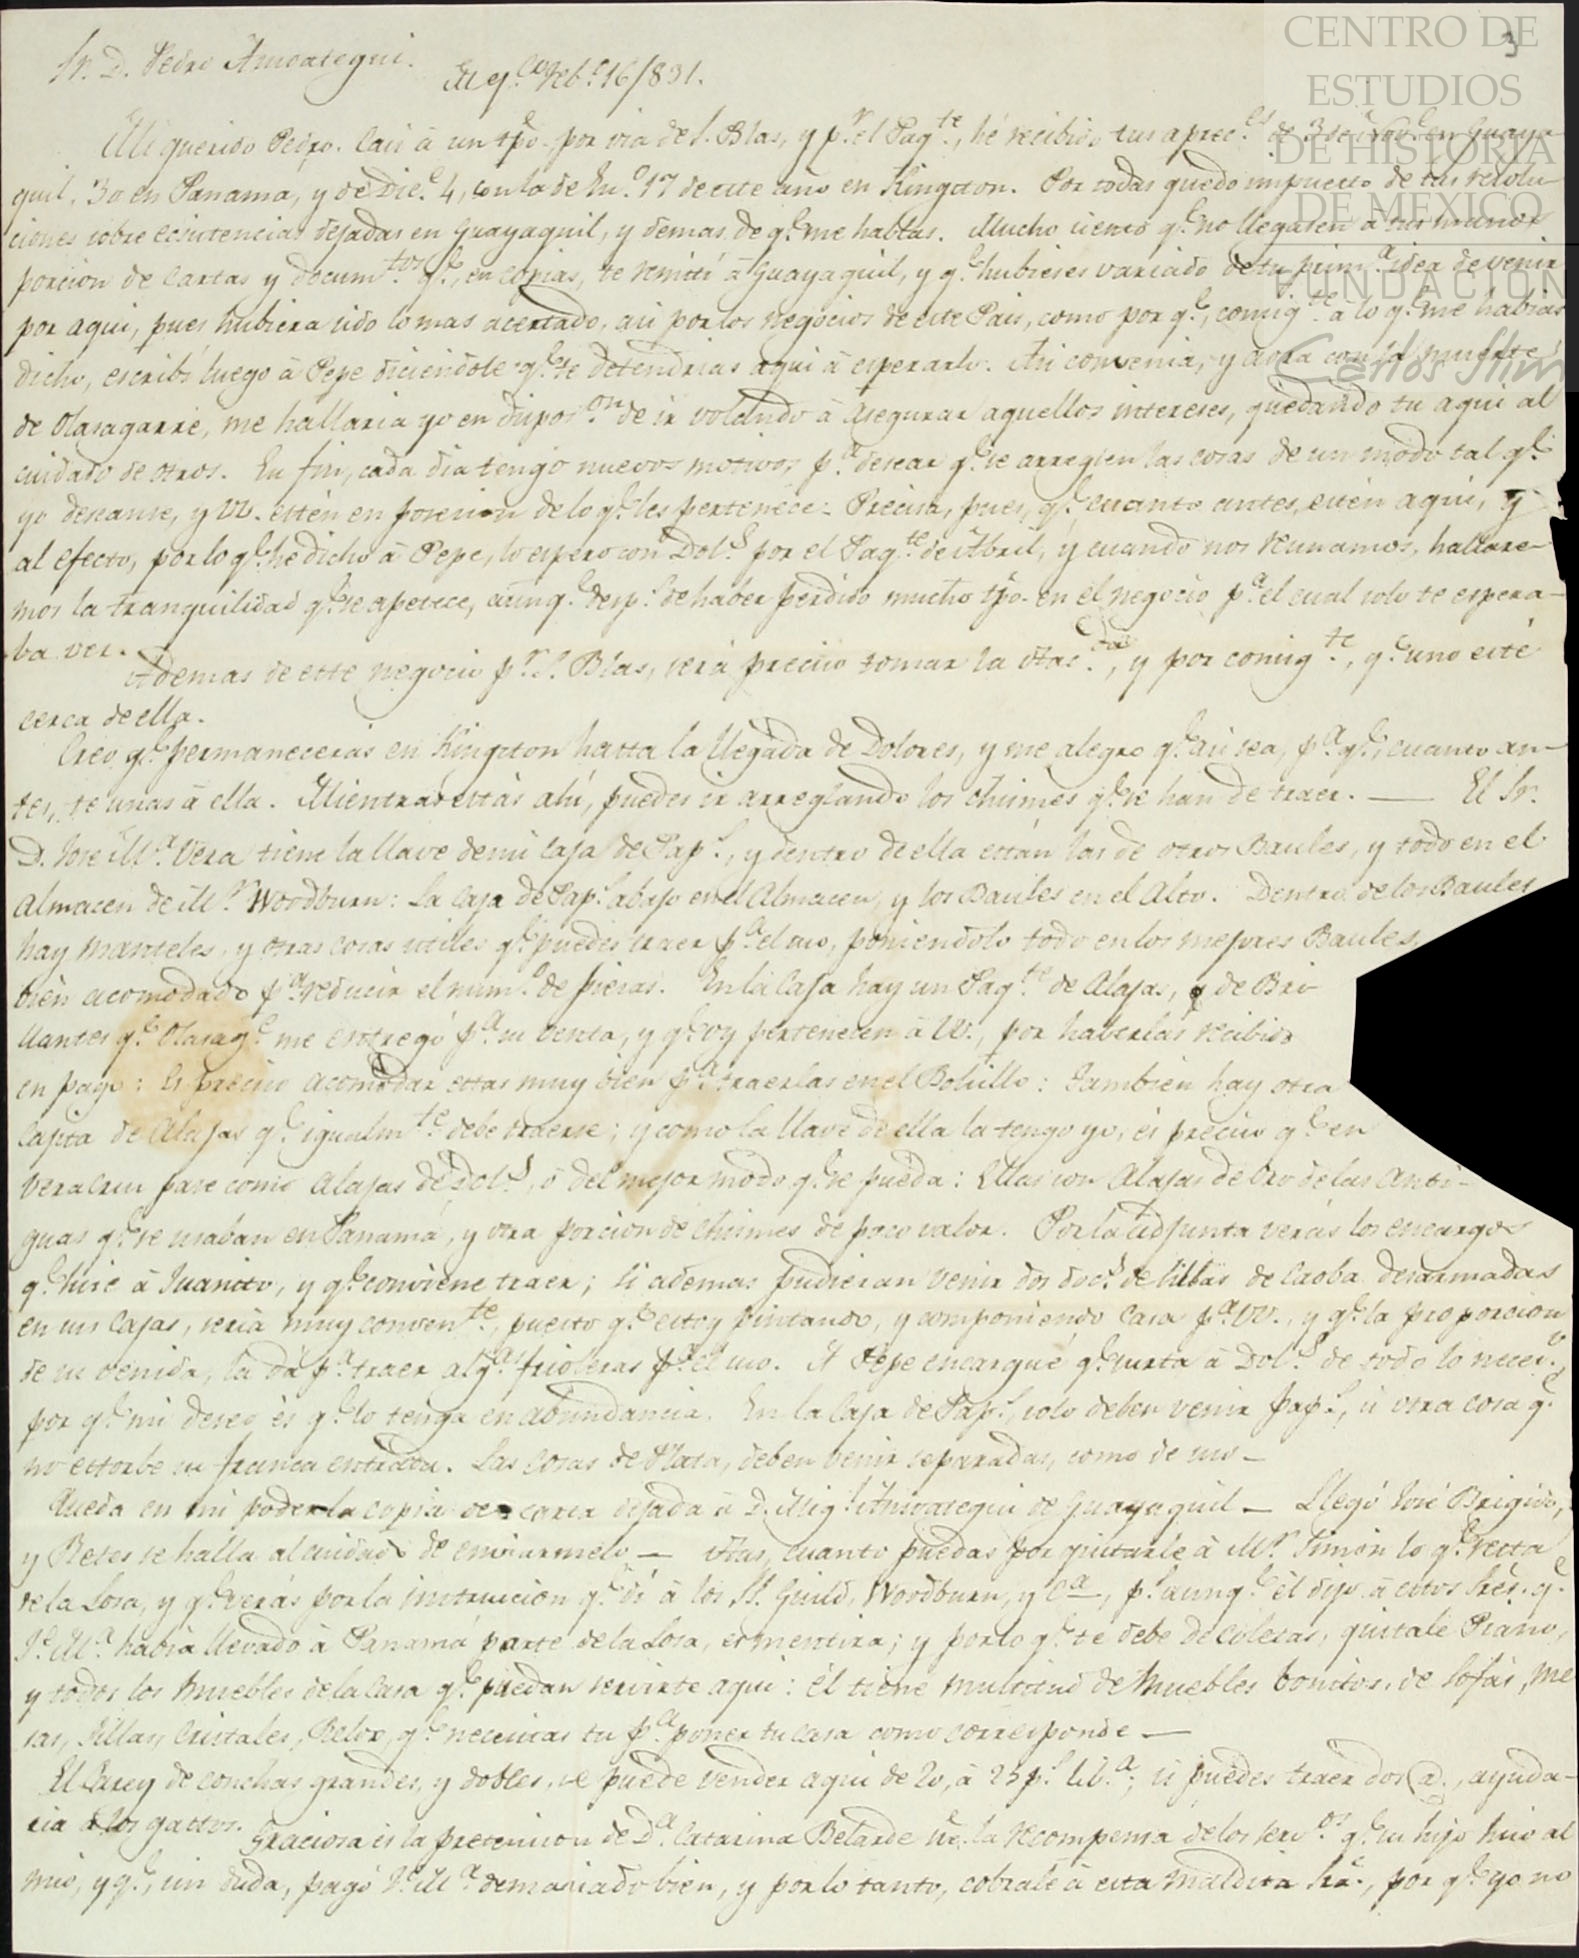 CENTRO DE
ESTUDIOS
DE HISTORIA
DE MEXICO
FUNDACION
Carlos Slim
3
Sr. D. Pedro Amoategui.
Mex.co Feb.o 16/831.
Mi querido Pedro. Casi à un tpo. por via de S. Blas, y p.r el Paq.te, hé recibido tus aprec.es de 3 de Nov.e en Guaya-
quil, 30 en Panama, y de Dic.e 4, con la de En.o 17 de este año en Kingston. Por todas quedo impuesto de tus resolu-
ciones sobre ecsistencias dejadas en Guayaquil, y demas de q.e me hablas. Mucho siento q.e no llegasen à tus manos
porcion de Cartas y docum.tos q.e, en copias, te remití à Guayaquil, y q.e hubieses variado de tu prim.a idea de venir
por aqui, pues hubiera sido lo mas acertado, asi por los negocios de este Pais, como por q.e, consig.te à lo q.e me habias
dicho, escribí luego à Pepe diciendole q.e te detendrias aqui à esperarlo. Asi convenia, y aora con la muerte
de Olasagarre, me hallaria yo en dispos.on de ir volando à asegurar aquellos intereses, quedando tu aqui al
cuidado de otros. En fin, cada dia tengo nuevos motivos p.a desear q.e se arreglen las cosas de un modo tal q.e
yo descanse, y VV. estén en posesion de lo q.e les pertenece. Precisa, pues, q.e cuanto antes, estén aqui, y
al efecto, por lo q.e he dicho à Pepe, lo espero con Dol.s por el Paq.te de Abril, y cuando nos reunamos, hallare-
mos la tranquilidad q.e se apetece, aunq.e desp.s de haber perdido mucho tpo. en el negocio p.a el cual solo te espera-
ba ver.
Ademas de este negocio p.r S. Blas, será preciso tomar la Hac.da, y por consig.te, q.e uno esté
cerca de ella.
Creo q.e permanecerás en Kingston hasta la llegada de Dolores, y me alegro q.e asi sea, p.a q.e, cuanto an-
tes, te unas à ella. Mientras estás ahí, puedes ir arreglando los chismes q.e se han de traer. — El Sr.
D. Jose M.a Vera tiene la llave de mi Caja de Pap.s, y dentro de ella están las de otros Baules, y todo en el
Almacen de M.r Woodburn: la Caja de Pap.s abajo en el Almacen, y los Baules en el Alto. Dentro de los Baules
hay manteles, y otras cosas utiles q.e puedes traer p.a el uso, poniendolo todo en los mejores Baules,
bien acomodado p.a reducir el num.o de piezas. En la Caja hay un Paq.te de Alajas, y de Bri-
llantes q.e Olasag.e me entregó p.a su venta, y q.e oy pertenecen à VV., por haberlas recibido
en pago: Es preciso acomodar estas muy bien p.a traerlas en el Bolsillo: Tambien hay otra
Cajita de Alajas q.e igualm.te debe traerse; y como la llave de ella la tengo yo, és preciso q.e en
Veracruz pase como Alajas de Dol.s, ò del mejor modo q.e se pueda: Ellas son Alajas de Oro de las anti-
guas q.e se usaban en Panamá, y otra porcion de chismes de poco valor. Por la adjunta verás los encargos
q.e hice à Juanito, y q.e conviene traer; si ademas pudieran venir dos doc.s de sillas de Caoba desarmadas
en sus Cajas, seria muy conven.te, puesto q.e estoy pintando, y componiendo Casa p.a VV., y q.e la proporcion
de su venida, la dá p.a traer alg.as frioleras p.a el uso. A Pepe encargué q.e surta à Dol.s de todo lo neces.o,
por q.e mi deseo és q.e lo tenga en abundancia. En la Caja de Pap.s, solo deben venir pap.s, ù otra cosa q.e
no estorbe su franca entrada. Las cosas de Plata, deben venir separadas, como de uso —
Queda en mi poder la copia de carta dejada à D. Mig.l Amoategui de Guayaquil — Llegó José Brigido,
y Retes se halla al cuidado de enviarmelo — Has, cuanto puedas por quitarle à M.r Simon lo q.e resta
de la Losa, y q.e verás por la instrucion q.e dí à los SS. Guild, Woodburn, y C.a, p.s aunq.e él dijo à estos Sres. q.e
J.e M.a habia llevado à Panamá parte de la Losa, es mentira; y por lo q.e te debe de , quitale Piano,
y todos los Muebles de la Casa q.e puedan servirte aqui: él tiene multitud de Muebles bonitos, de Sofás, me-
sas, Sillas, Cristales, Relox, q.e necesitas tu p.a poner tu casa como corresponde —
El Carey de conchas grandes, y dobles, se puede vender aqui de 20, à 25 p.s lib.a; si puedes traer dos @., ayuda-
ria à los gastos.
Graciosa és la pretension de D.a Catarina Belarde sre. la recompensa de los serv.os q.e su hijo hizo al
mio, y q.e, sin duda, pagó J.e M.a demasiado bien, y por lo tanto, cobrale à esta maldita Sra., por q.e yo no